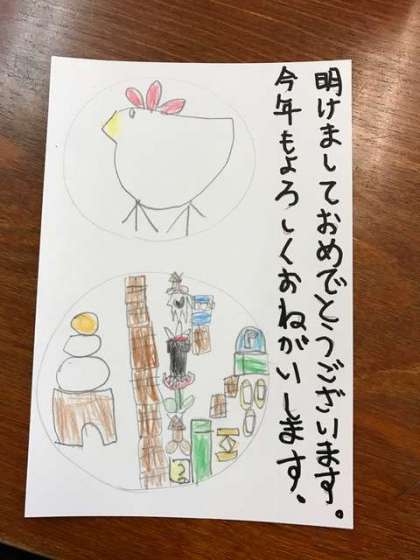 明けましておめでとうございます。
今年もよろしくおねがいします。
?